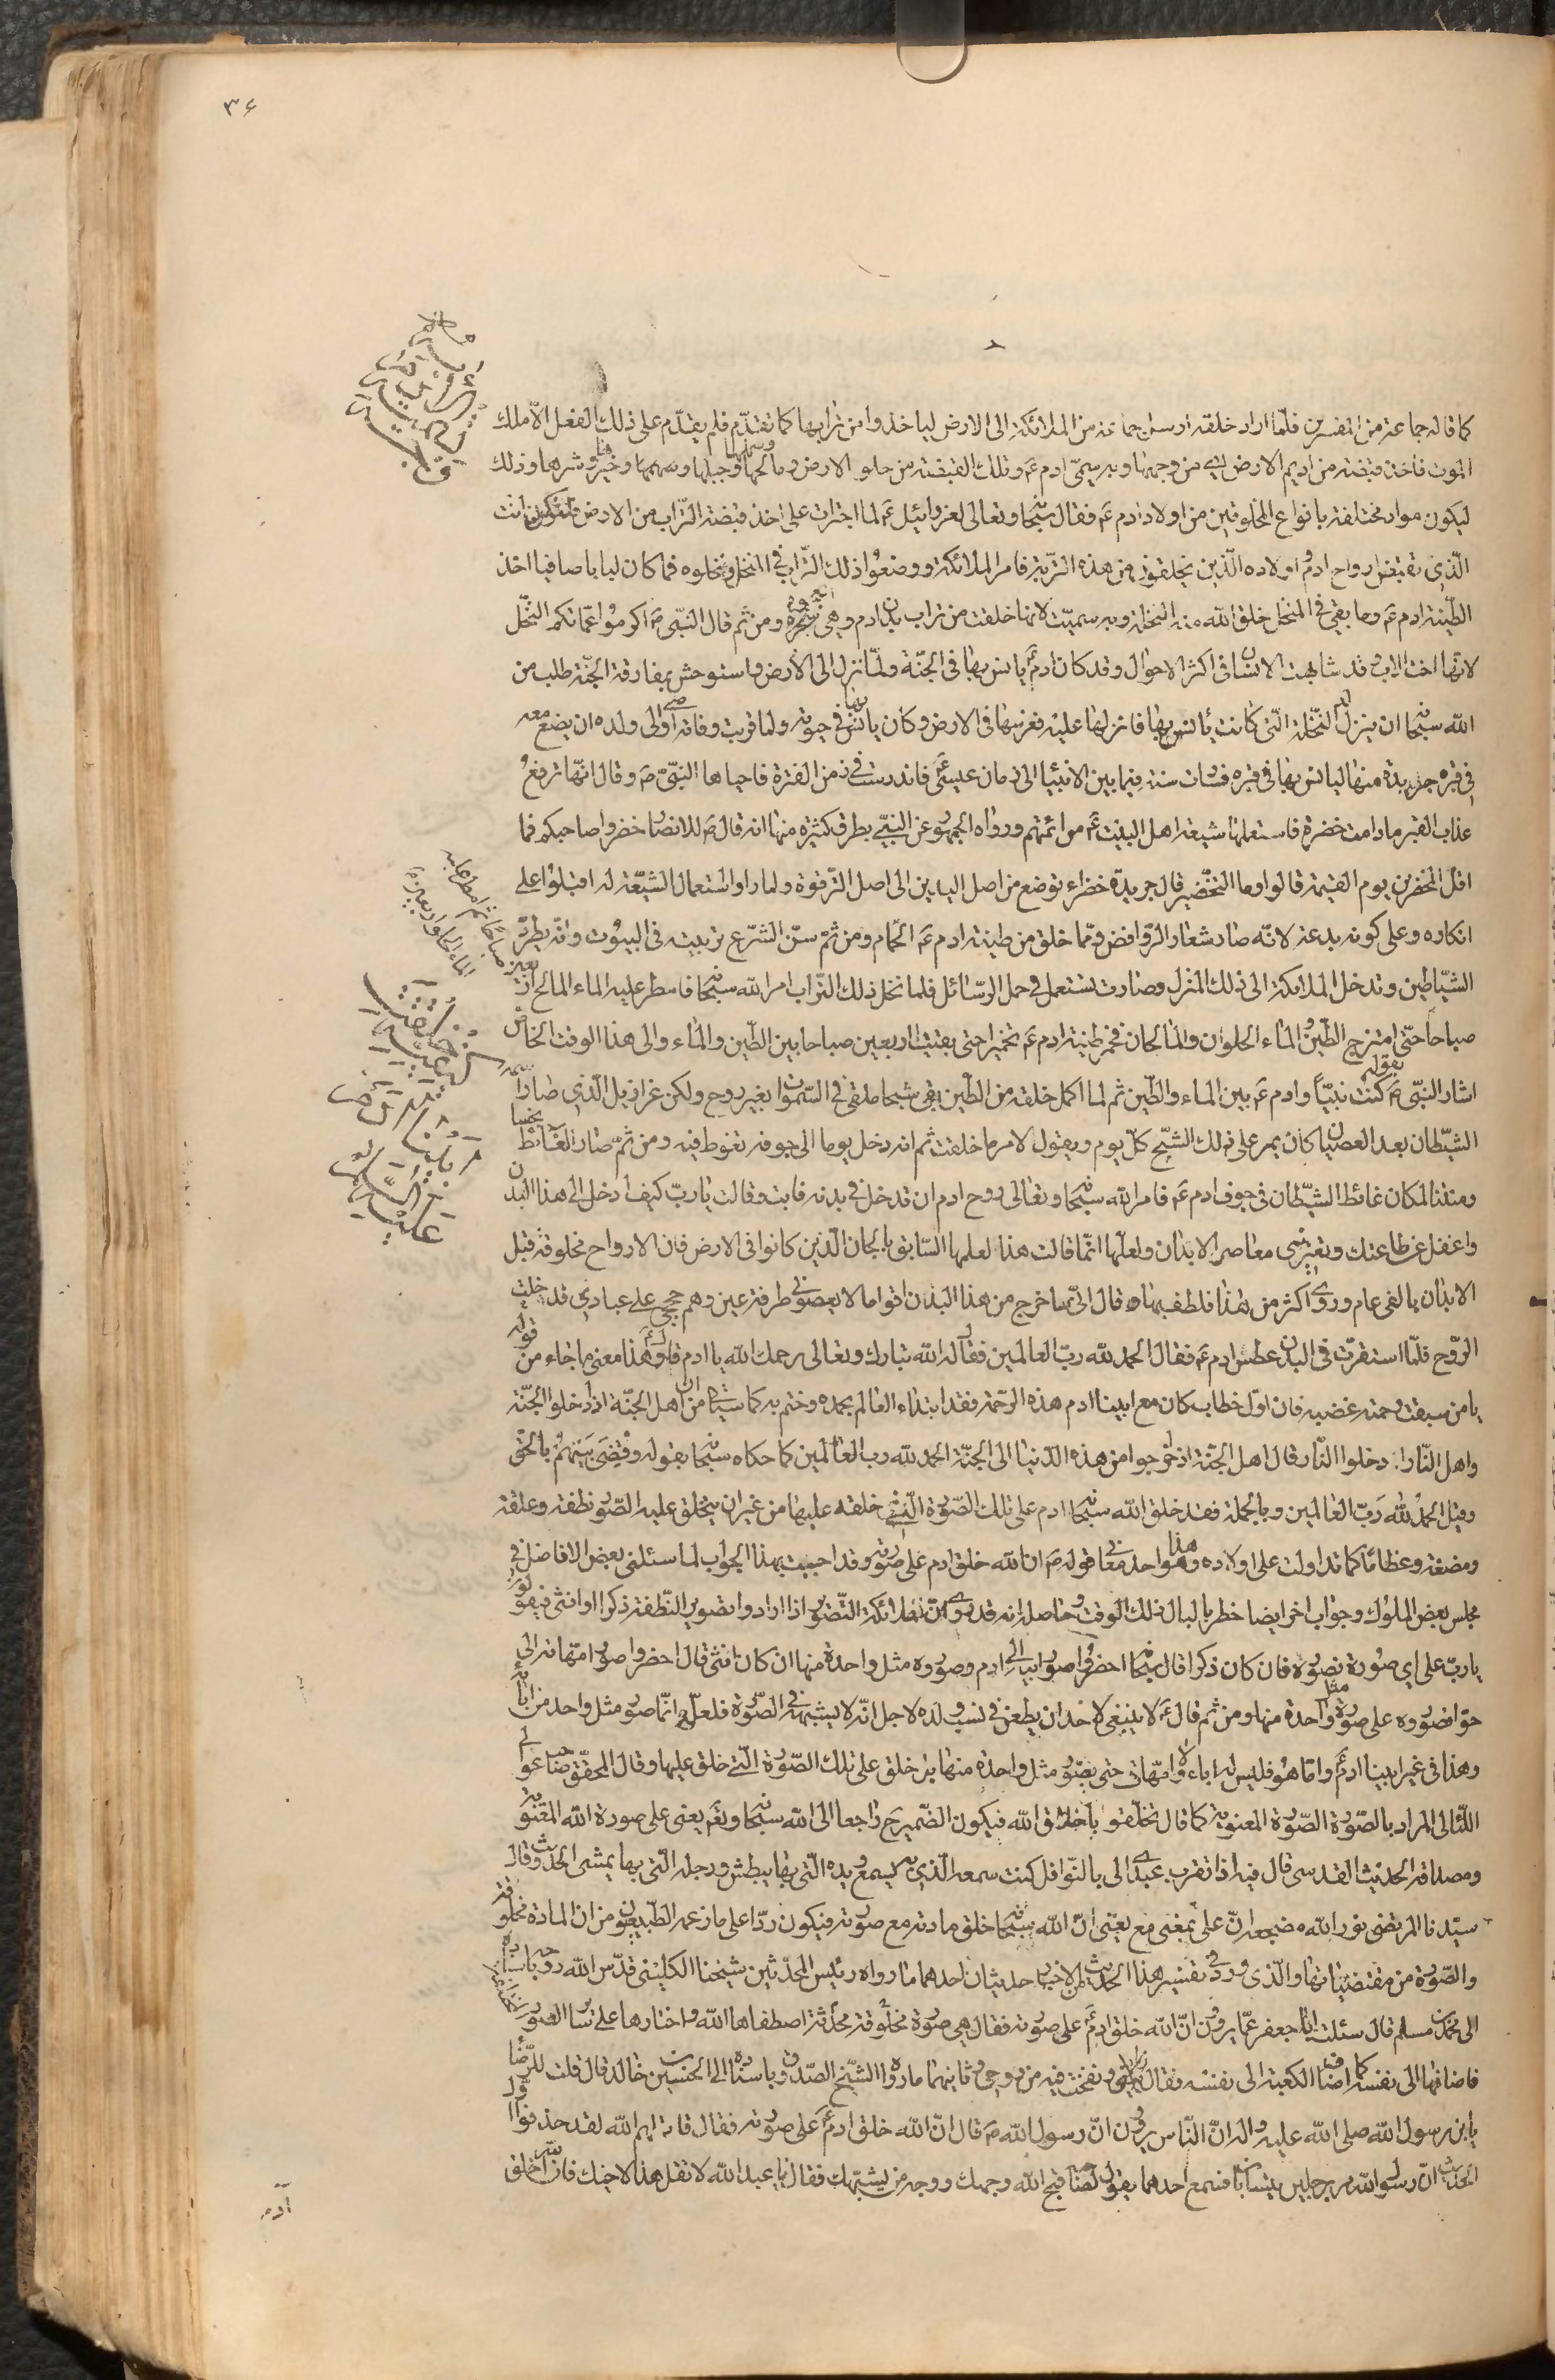 ٣۶
كما قاله جماعة من المفسرين فلمّا اراد خلقه ارسل جماعة من الملائكة الى الارض لياخذوا من ترابها كما تقدّم فلم يقدّم على ذلك الفعل الّا ملك
الموت فاخذ قبضة من اديم الارض اى من وجهها وبه سمّى ادم عَم وتلك القبضة من حلو الارض ومالحها وجبلها وسهلها وخيرها وشرها وذلك
ليكون مواد مختلفة بانواع المخلوقين من اولاد ادم عَم فقال سبحانه وتعالى لعزرائيل عَم لما اجترات على اخذ قبضة التّراب من الارض فلتكن انت
الّذى تقبض ارواح ادم واولاده الّذين يخلقون من هذه التربة فامر الملائكة ووضعوا ذلك التّراب فى المنخل ونخلوه فما كان لبابا صافيا اخذ
الطّينة ادم عَم وما بقى فى المنخل خلق الله منه النخلة وبه سميّت لانها خلقت من نراب بدن ادم وهى العجوة ومن ثم قال النبّى صَ اكرموا عمّاتكم النخّل
لانها اخت الاب وقد شابهت الانسان فى اكثر الاحوال وقد كان ادمَ يانس بها فى الجنّة ولمّا نزل الى الارض واستوحش بمفارقة الجنّة طلب من
الله سبحانه ان ينزل له النّخلة الّتى كانت يأنس بها فانزلها عليه فغرسها فى الارض وكان يانس بها فى حيوته ولما قربت وفاته اوصى الى ولده ان يضع معه
فى قبره جريدة منها ليانس بها فى قبره فصارت سنة فيما بين الانبيا الى زمان عيسى عَم فاندرست فى زمن الفترة فاحياها النبّى صَ وقال انّها ترفع
عذاب القبر ما دامت خضرة فاستعملها شيعة اهل البيت عَم من ائمتهم ورواه الجمهور عن النبى بطرق كثيرة منها انه قال صَ للانصار خضروا صاحبكم فما
اقل المخضرين يوم القيمة قالوا وما التخضير قال جريدة خضراء توضع من اصل اليدين الى اصل الترقوة ولما راوا استعمال الشيّعة له اقبلوا على
انكاره وعلى كونه بدعة لانّه صار شعار الروافض وممّا خلق من طينة ادم عَم الحمام ومن ثم سنّ الشرّع تربيته فى البيوت وانّه يطرد
الشّياطين وتدخل الملائكة الى ذلك المنزل وصارت تستعمل فى حمل الرسّائل فلما نخل ذلك التّراب امر الله سبحانه فامطر عليه الماء المالح اربعين
صباحا حتّى امتزج الطّين والماء الحلو والمالحان فخمر طينة ادم عَم تخميرا حتى بقيت اربعين صباحا بين الطّين والماء والى هذا الوقت الخاصّ
اشار النبّى صَ بقوله كنت نبيّاً وادم عَم بين الماء والطّين ثم لما اكمل خلقه من الطّين بقى شبحا ملقى فى السّموات بغير روح ولكن عزازيل الّذى صار اسمه
الشيّطان بعد العصيان كان يمر على ذلك الشبّح كلّ يوم ويقول لامر ما خلقت ثم انه دخل يوما الى جوفه تغوط فيه ومن ثمّ صار الغايط نجسا
ومنتنا لمكان غائط الشيّطان فى جوف ادم عَم فامر الله سبحانه وتعالى روح ادم ان تدخل فى بدنه فابت وقالت يا ربّ كيف ادخل الى هذا البدن
واغفل عن طاعتك وتغيرنى معاصى الابدان ولعلّها انّما قالت هذا لعلمها السّابق بالجان الّذين كانوا فى الارض فان الارواح مخلوقة قبل
الابدان بالفى عام وروى اكثر من هذا فلطف بها وقال انّى ساخرج من هذا البدن اقواما لا يعصونى طرفة عين وهم حججى على عبادى قد خلت
الرّوح فلمّا استقرّت فى البدن عطس ادم عَم فقال الحمد لله ربّ العالمين فقال له الله تبارك وتعالى يرحمك الله يا ادم وهذا معنى ما جاء من قوله
يا من سبقت رحمته غضبه فان اوّل خطاب كان مع ابينا ادم هذه الرّحمة فقد ابتداء العالم بحمده وختم به كما سياتى من ان اهل الجنّة اذا دخلوا الجنّة
واهل النّار اذا دخلوا النّار قال اهل الجنّة اذ خرجوا من هذه الدّنيا الى الجنّة الحمد لله رب العالمين كما حكاه سبحانه بقوله وَقُضِىَ بَيْنَهُمْ بالحَقّ
وقيل الحمدُ للهِ رَبّ العالمين وبالجملة فقد خلق الله سبحانه ادم على تلك الصّورة الّتى خلقه عليها من غير ان يتخلق عليه الصّور نطفة وعلقة
ومضغة وعظاما كما تداولت على اولاده وهذا هو احد معانى قوله صَ ان الله خلق ادم على صورته وقد اجبت بهذا الجواب لما سئلنى بعض الافاضل فى
مجلس بعض الملوك وجواب اخر ايضا خطر بالبال ذلك الوقت وحاصله انه قد روى انّ ملائكة التّصوير اذا ارادوا تصوير النّطفة ذكرا او انثى فيقولون
يا ربّ على اى صورة نصوّره فان كان ذكرا قال سبحانه احضروا صور ابائه الى ادم وصوّروه مثل واحدة منها وان كان انثى قال احضروا صور امّهاته الى
حوّا فصوّروه على صورة واحدة منها ومن ثم قال عَم لا ينبغى لاحد ان يطعن فى نسب ولده لاجل انّه لا يشبهه فى الصّورة فلعلّه انّما صوّر مثل واحد من ابائه
وهذا فى غير ابينا ادمَ وامّا هو فليس له اباء ولا امّهات حتى يصوّر مثل واحدة منها بل خلق على تلك الصّورة الّتى خلق عليها وقال المحقّق صاحب عوالى
اللّئالى المراد بالصّورة الصّورة المعنوية كما قال تخلّقوا باخلاق الله فيكون الضّمير ح راجعا الى الله سبحانه ونعم يعنى على صورة الله المعنوية
ومصداقه الحديث القدسى قال فيه اذا تقرب عبدى الى بالنّوافل كنت سمعه الّذى به يسمع ويده الّتى بها يبطش ورجله الّتى بها يمشى الحديث وقال
سيّدنا المرتضى نور الله مضجعه انّ على بمعنى مع يعنى انّ الله سبحانه خلق مادته مع صورته فيكون ردّا على ما زعمه الطّبيعيون من ان المادة مخلوقة
والصّورة من مقتضياتها والّذى ورد فى تفسير هذا الحديث من الاخبار حديثان احدهما ما رواه رئيس المحدّثين شيخنا الكلينى قدّس الله روحه باسناده
الى محمّد بن مسلم قال سئلت ابا جعفر عَم عمّا يروون انّ الله خلق ادمَ على صورته فقال هى صورة مخلوقة محدثة اصطفاها الله واختارها على سائر الصور
فاضافها الى نفسه كما اضاف الكعبة الى نفسه فقال بيتى ونفخت فيه من روحى وثانيهما ما رواه الشّيخ الصّدوق باسناده الى الحسين بن خالد قال قلت للرّضا
يا بن رسول الله صلى الله عليه واله انّ النّاس يروون انّ رسول الله صَ قال انّ الله خلق ادمَ على صورته فقال قاتلهم الله لقد حذفوا اول
الحديث انّ رسول الله مر برجلين يتسابّان فسمع احدهما يقول لصاحبه قبح الله وجهك ووجه من يشبهك فقال يا عبد الله لا تقل هذا لاخيك فانّ الله خلق
آدم